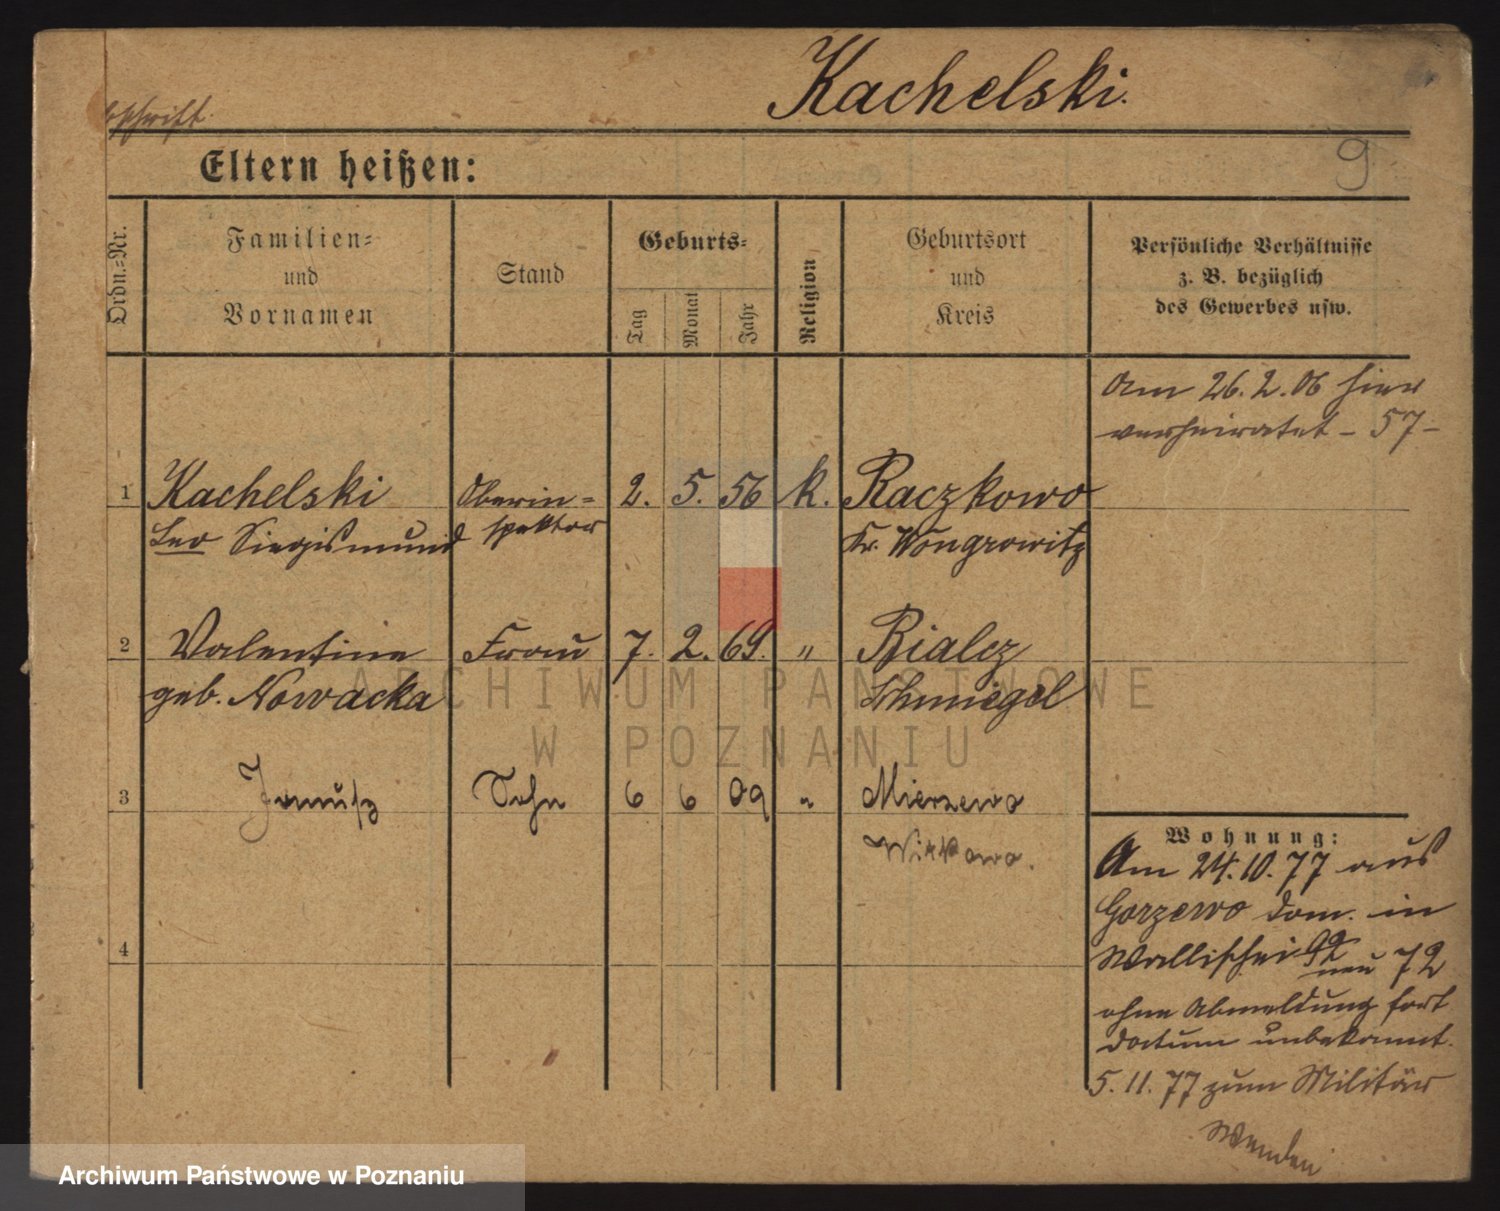 Kachelski.
bschrift.
Eltern heißen:
9
Ordn.-Nr.
Familien-
und
Vornamen
Stand
Geburts-
Tag
Monat
Jahr
Religion
Geburtsort
und
Kreis
Persönliche Verhältnisse
z. B. bezüglich
des Gewerbes usw.
Am 26.2.06 hier
verheiratet – 57 –
1 Kachelski Oberin= 2. 5. 56 k. Raczkowo
Leo Siegismund spektor Kr. Wongrowitz
2 Valentine Frau 7. 2. 69. " Bialcz
geb. Nowacka Schmiegel
3 Janusz Sohn 6 6 09 " Mierzewo
Witkowo.
4
Wohnung:
Am 24.10.77 aus
Gorzewo dom. in
Wallischei 92
neu 72
ohne Abmeldung fort
Datum unbekannt.
5.11.77 zum Militär
Wenden
ARCHIWUM PAŃSTWOWE
W POZNANIU
Archiwum Państwowe w Poznaniu